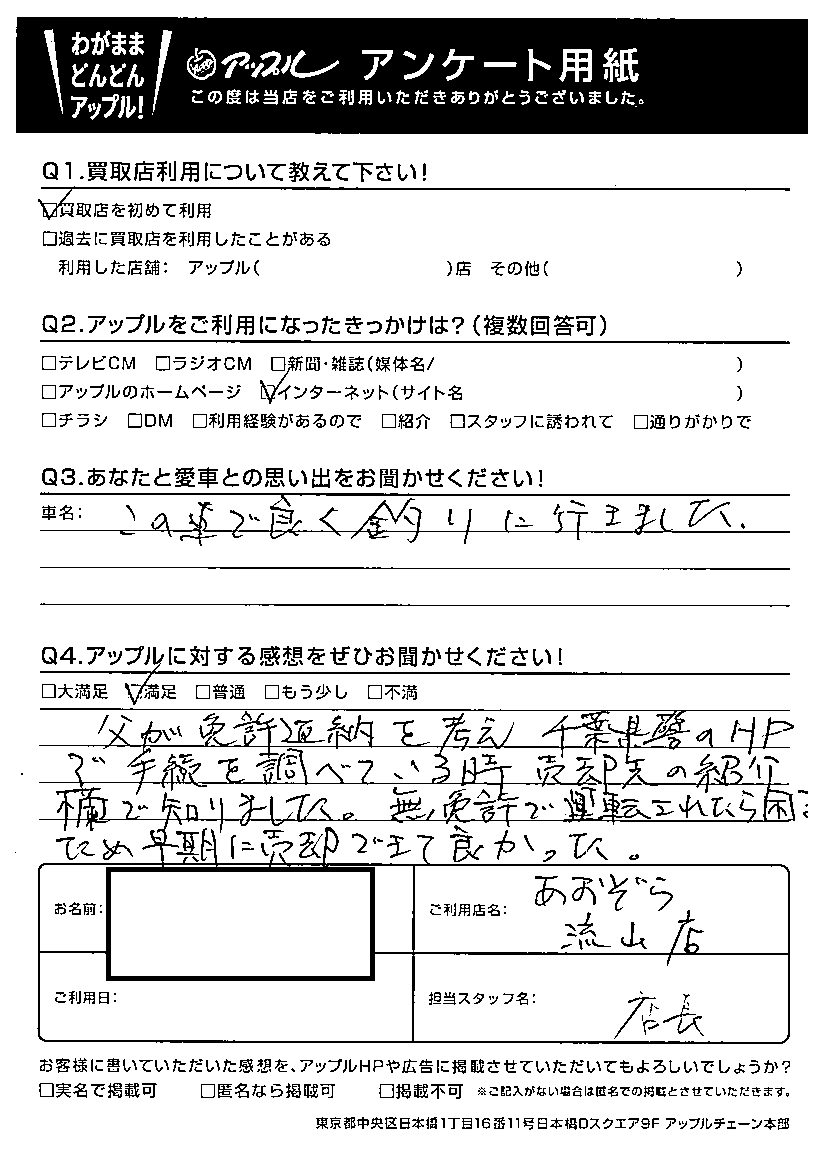 わがまま
どんどん
アップル!
アップル アンケート用紙
この度は当店をご利用いただきありがとうございました。
Q1.買取店利用について教えて下さい!
☑買取店を初めて利用
□過去に買取店を利用したことがある
利用した店舗: アップル( )店 その他( )
Q2.アップルをご利用になったきっかけは?(複数回答可)
□テレビCM □ラジオCM □新聞・雑誌(媒体名/ )
□アップルのホームページ ☑インターネット(サイト名 )
□チラシ □DM □利用経験があるので □紹介 □スタッフに誘われて □通りがかりで
Q3.あなたと愛車との思い出をお聞かせください!
車名: この車で良く釣りに行きました.
Q4.アップルに対する感想をぜひお聞かせください!
□大満足 ☑満足 □普通 □もう少し □不満
父が免許返納を考え 千葉県警のHP
で手続を調べている時 売却先の紹介
欄で知りました。無免許で運転されたら困る
ため早期に売却できて良かった。
お名前:
ご利用店名: あおぞら
流山店
ご利用日:
担当スタッフ名: 店長
お客様に書いていただいた感想を、アップルHPや広告に掲載させていただいてもよろしいでしょうか?
□実名で掲載可 □匿名なら掲載可 □掲載不可 ※ご記入がない場合は匿名での掲載とさせていただきます。
東京都中央区日本橋1丁目16番11号日本橋Dスクエア9F アップルチェーン本部